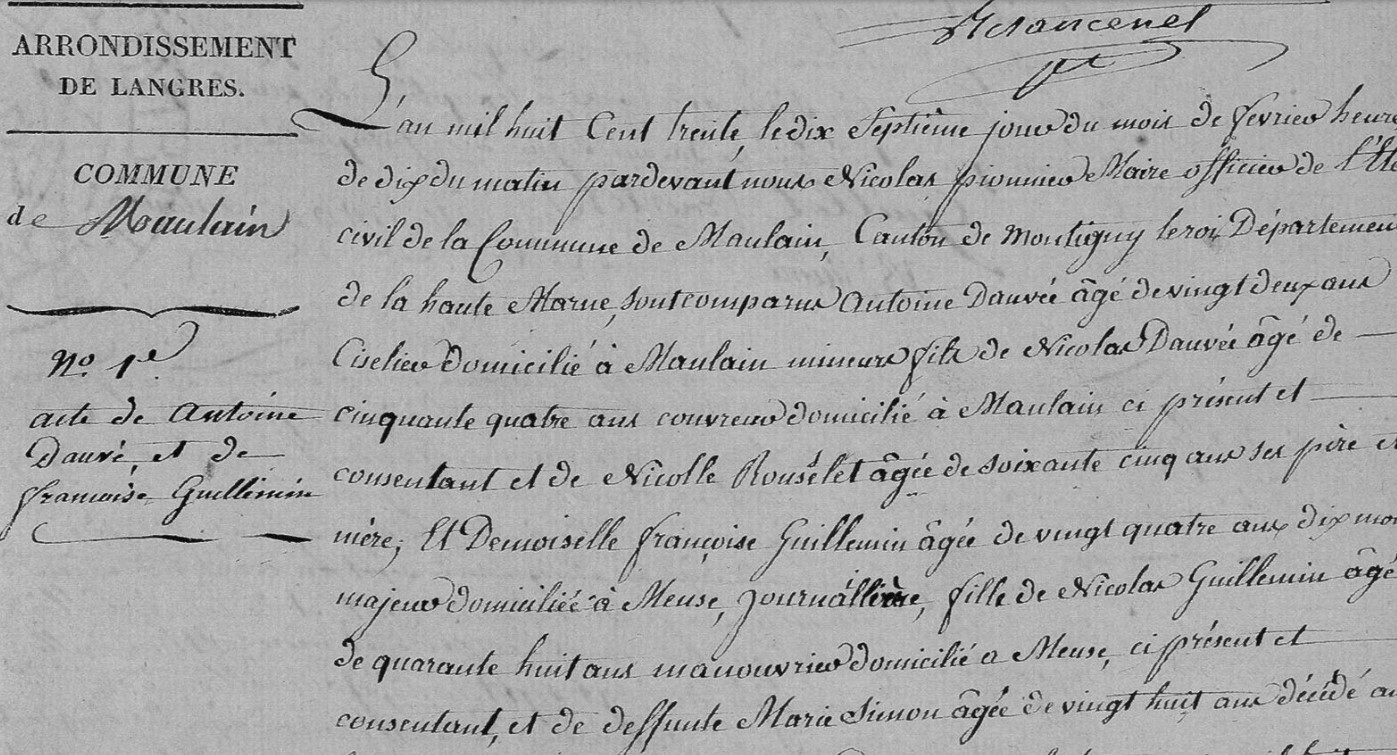 ARRONDISSEMENT
DE LANGRES.
COMMUNE
de Maulain
No. 1e
acte de Antoine
Dauvé, et de
françoise Guillemin
L'an mil huit Cent trente, le dix Septième jour du mois de fevrier heure
de dix du matin pardevant nous Nicolas pionnier Maire officier de l'Eta
civil de la Commune de Maulain, Canton de Montigny leroi Département
de la haute Marne, sont comparus Antoine Dauvée âgé de vingt deux ans
Ciselier domicilié à Maulain mineure fils de Nicolas Dauvée âgé de
cinquante quatre ans couvreur domicilié à Maulain ci présent et
consentant et de Nicolle Rousélet âgée de soixante cinq ans ses père et
mère; Et Demoiselle françoise Guillemin âgée de vingt quatre ans dix moi
majeur domiciliée à Meuse, journallière, fille de Nicolas Guillemin âgé
de quarante huit ans manouvrier domicilié a Meuse, ci présent et
consentant, et de deffunte Marie Simon âgée de vingt huit ans décédé au